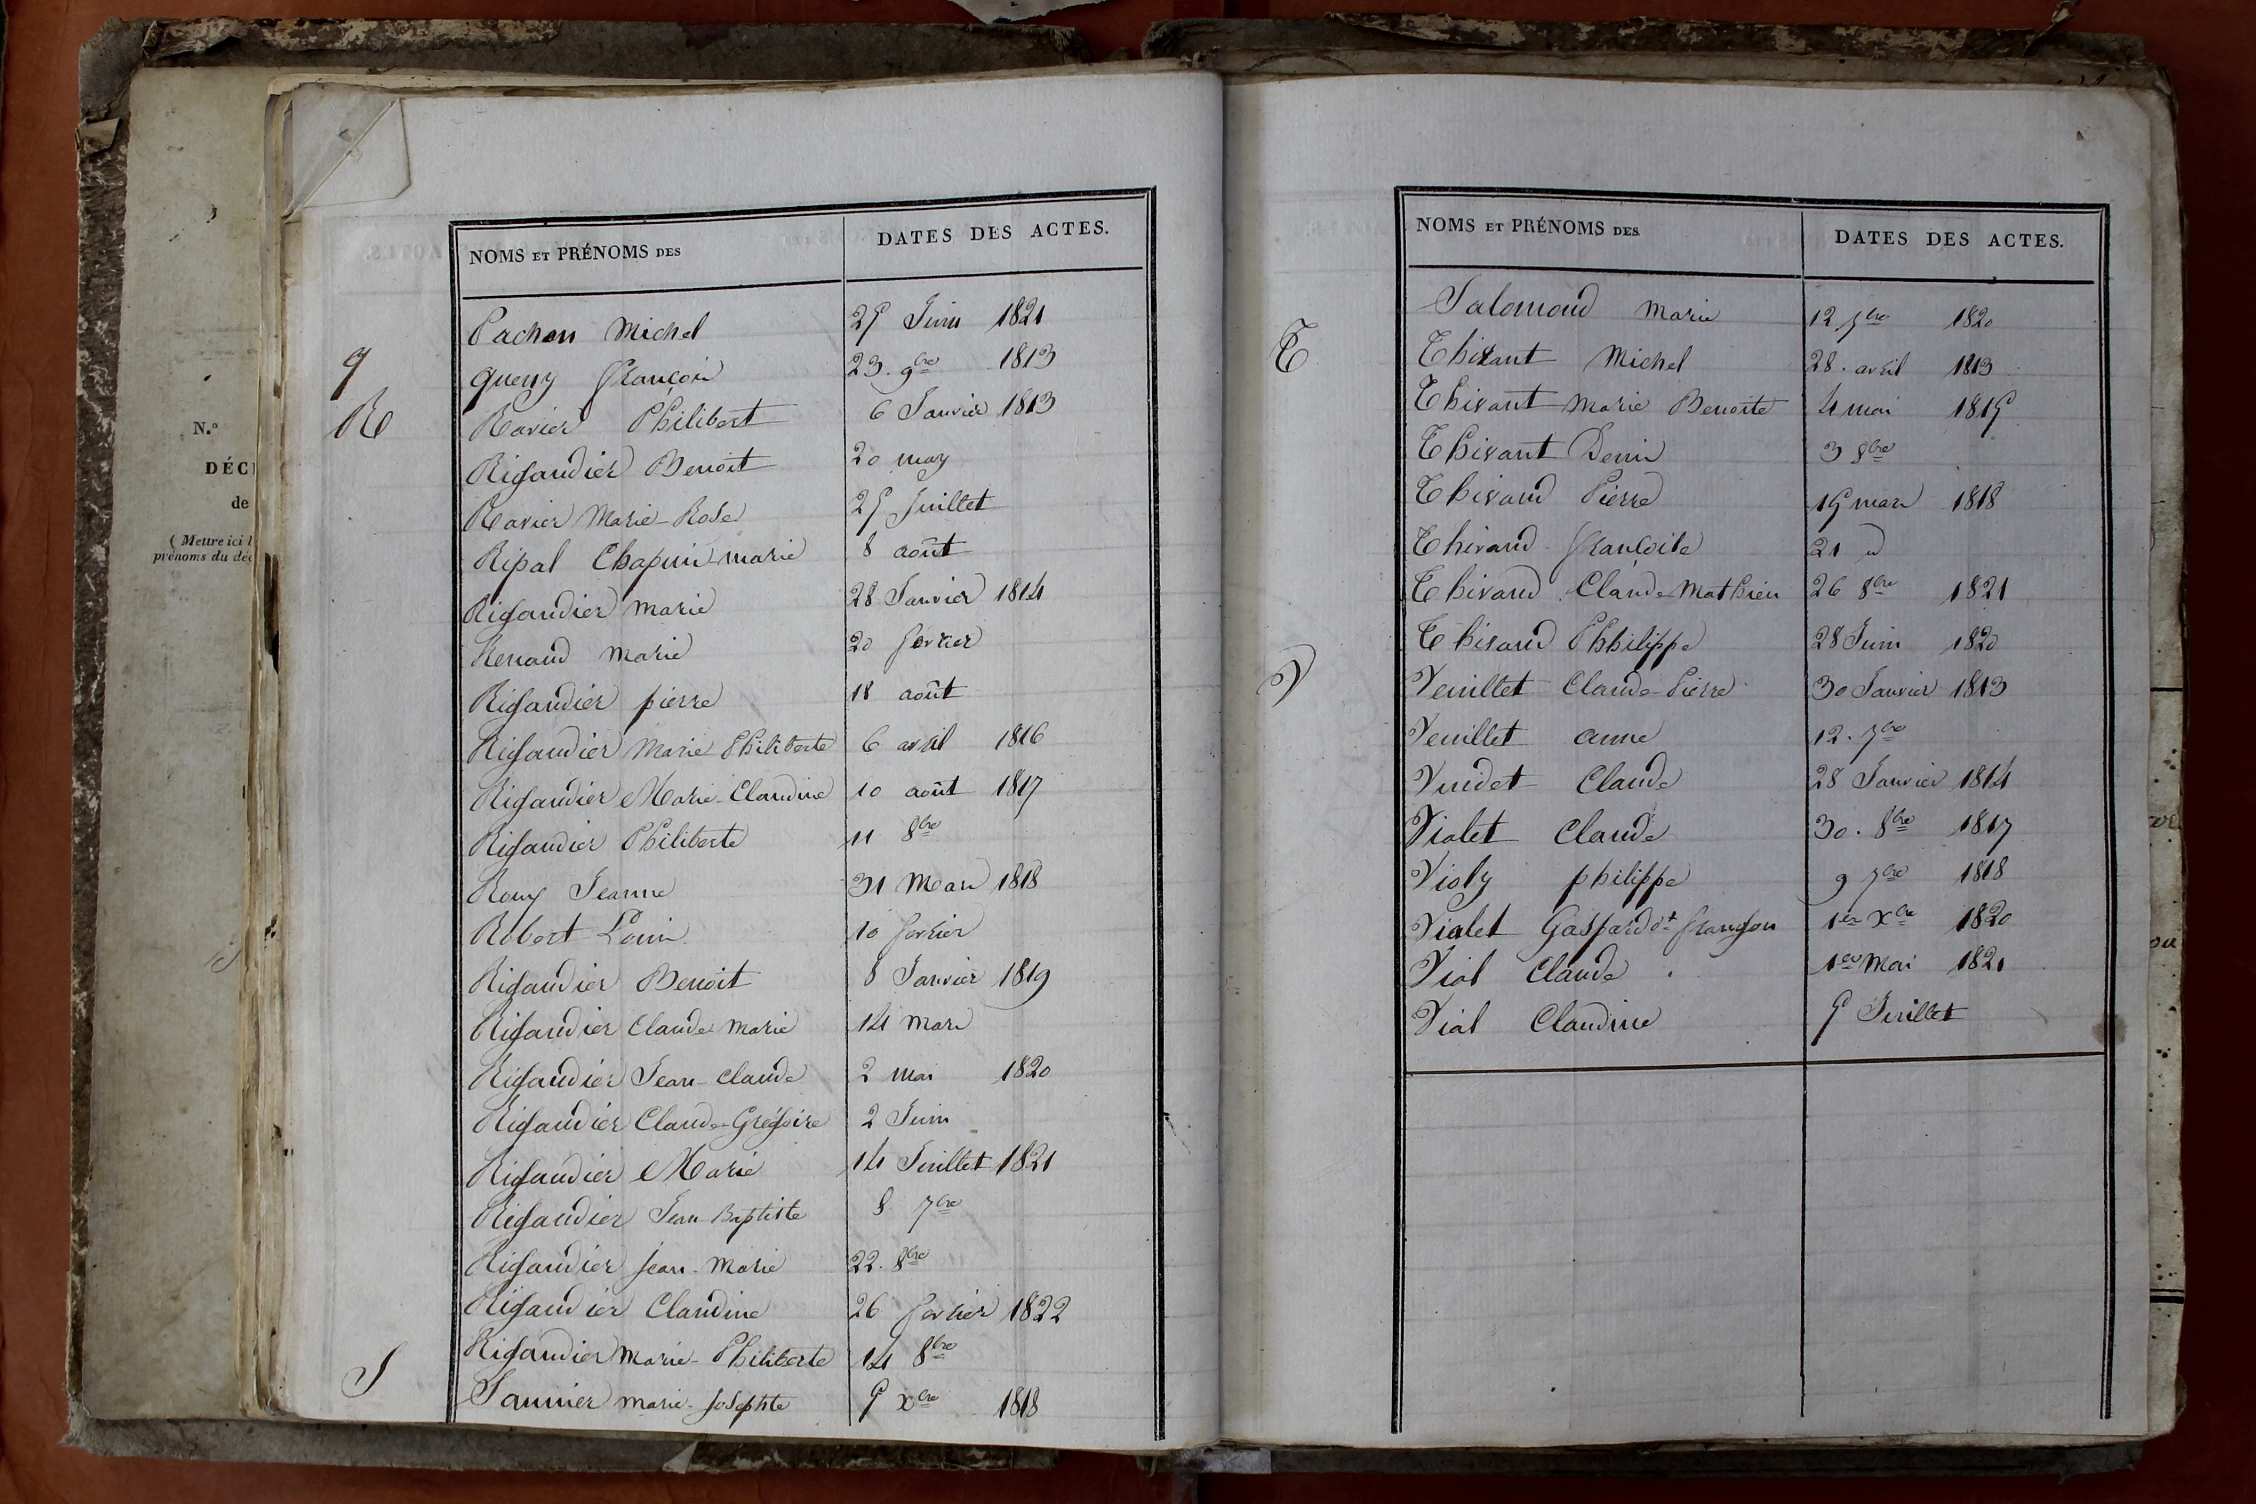 N.o
DÉC
de
( Mettre ici l
prénoms du déc
NOMS ET PRÉNOMS DES DATES DES ACTES.
Pachon Michel 25 Juin 1821
q queny françois 23. 9bre 1813
R Ravier Philibert 6 Janvier 1813
Rigaudier Benoit 20 may
Ravier Marie-Rose 25 Juillet
Ripal Chapuis marie 8 août
Rigaudier marie 28 Janvier 1814
Renaud marie 20 fevrier
Rigaudier pierre 18 août
Rigaudier Marie Philiberte 6 avril 1816
Rigaudier Marie-Claudine 10 août 1817
Rigaudier Philiberte 11 8bre
Rouy Jeanne 31 Mars 1818
Robert Louis 10 fevrier
Rigaudier Benoit 8 Janvier 1819
Rigaudier Claude Marie 14 Mars
Rigaudier Jean-Claude 2 mai 1820
Rigaudier Claude-Grégoire 2 Juin
Rigaudier Marie 14 Juillet 1821
Rigaudier Jean-Baptiste 8 7bre
Rigaudier Jean-Marie 22. 8bre
Rigaudier Claudine 26 fevrier 1822
Rigaudier Marie-Philiberte 14 8bre
S Saunier marie-Josephte 5 xbre 1818
NOMS ET PRÉNOMS DES DATES DES ACTES.
Salomond Marie 12 7bre 1820
T Thivant Michel 28. avril 1813
Thivant Marie Benoite 4 mai 1815
Thivant Denis 3 8bre
Thivand Pierre 15 mars 1818
Thivand françoise 21 d
Thivand Claude Mathieu 26 8bre 1821
Thivand Phhilippe 28 Juin 1820
V Veuillet Claude-Pierre 30 Janvier 1813
Veuillet anne 12. 7bre
Vuidet Claude 28 Janvier 1814
Vialet Claude 30. 8bre 1817
Violy philippe 9 7bre 1818
Vialet Gaspard françon 1er xbre 1820
Vial Claude 1er Mai 1821
Vial Claudine 5 Juillet